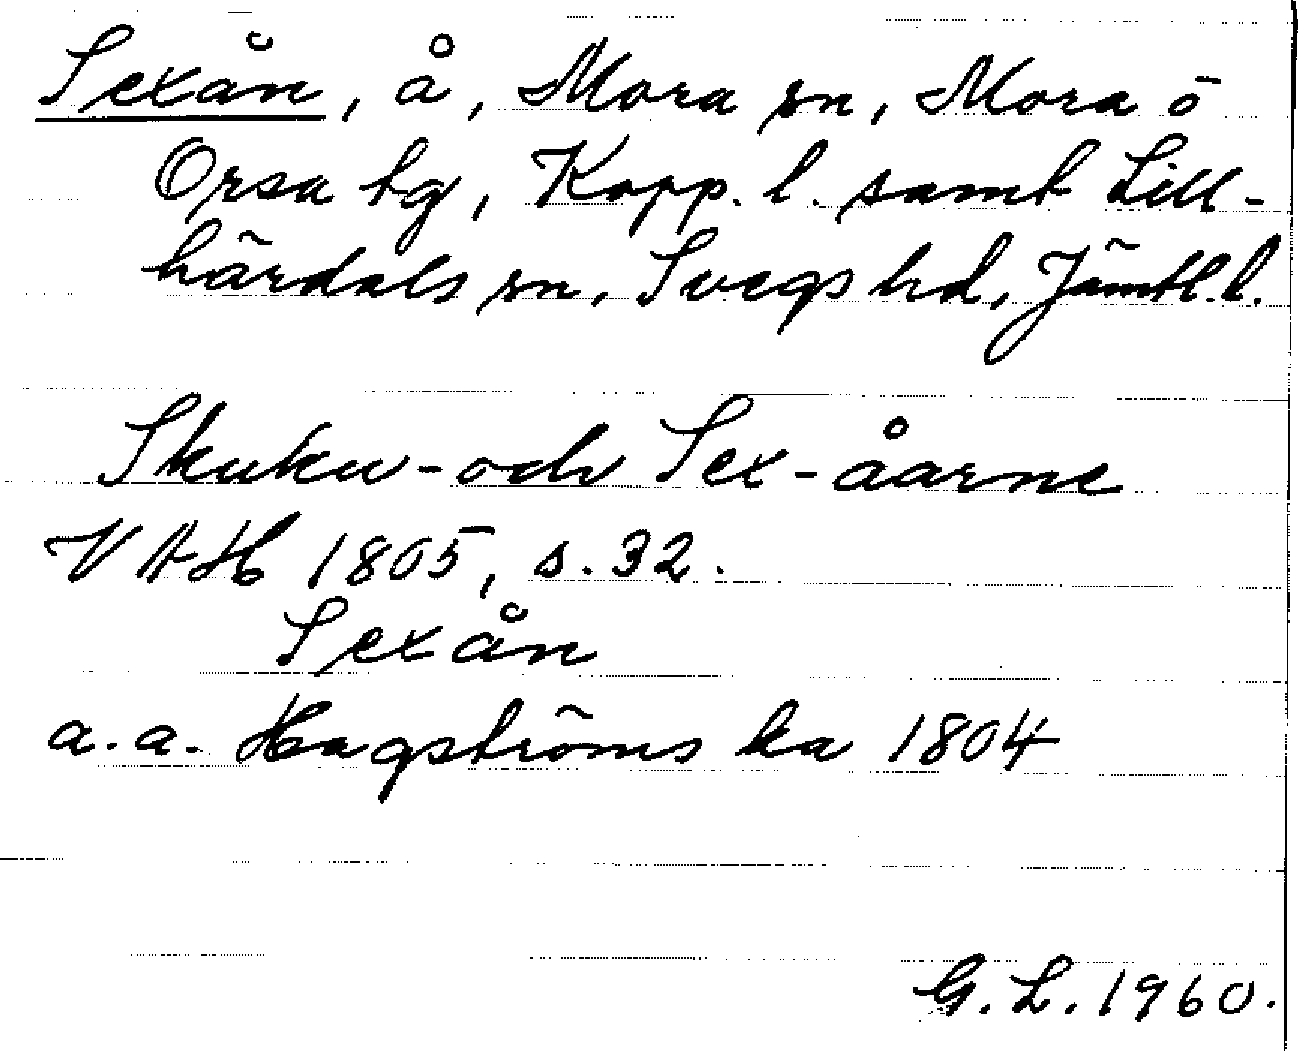 Sexån, å, Mora sn, Mora o
Orsa tg, Kopp. l. samt Lill-
härdals sn, Svegs hd, Jämtl. l.
Skuku- och Sex-åarne
VAH 1805, s. 32.
Sexån
a. a. Hagströms ka 1804
G. L. 1960.